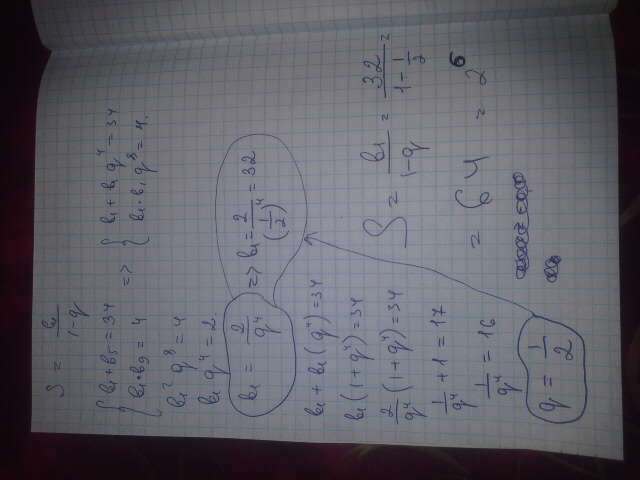 S = b₁/(1-q)
{ b₁ + b₅ = 34 => { b₁ + b₁ q⁴ = 34
b₁ · b₉ = 4 b₁ · b₁ q⁸ = 4.
b₁² q⁸ = 4
b₁ q⁴ = 2
b₁ = 2/q⁴ => b₁ = 2/(1/2)⁴ = 32
b₁ + b₁ (q⁴) = 34
b₁ (1 + q⁴) = 34
2/q⁴ (1 + q⁴) = 34
1/q⁴ + 1 = 17
1/q⁴ = 16
q = 1/2
S = b₁/(1-q) = 32/(1 - 1/2) =
= 64 = 2⁶